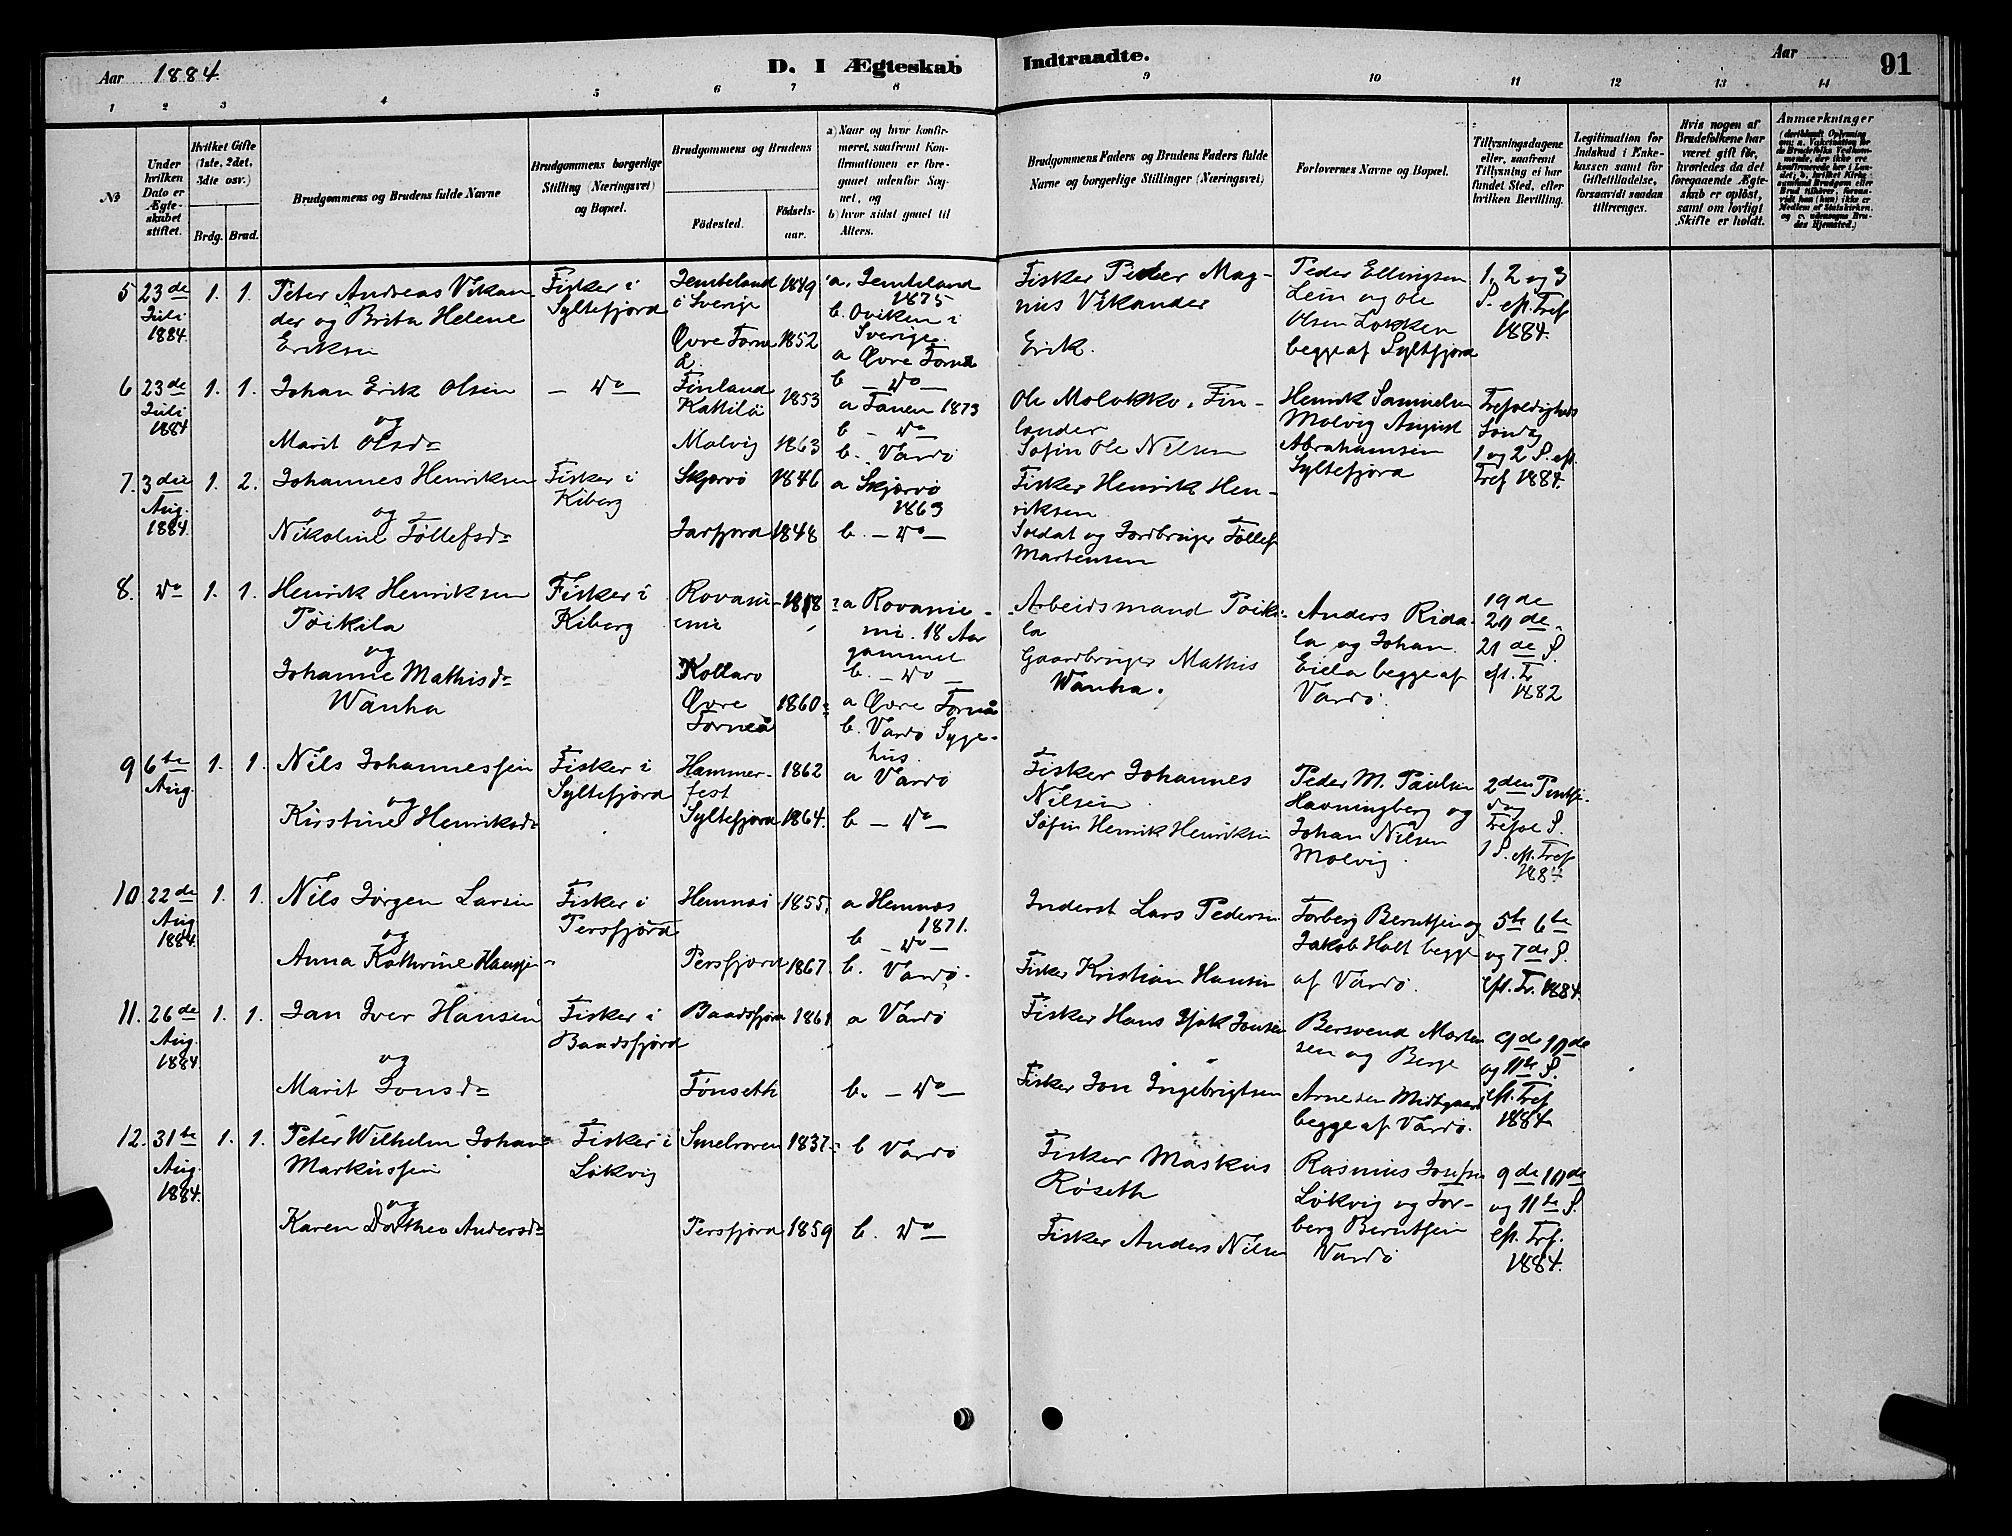 Aar 1884.
D. I Ægteskab Indtraadte.
Aar
91
1 2 3 4 5 6 7 8 9 10 11 12 13 14
No
Under hvilken Dato er Ægteskabet stiftet.
Hvilket Gifte (1ste, 2det, 3die osv.)
Brdg. Brud.
Brudgommens og Brudens fulde Navne
Brudgommens borgerlige Stilling (Næringsvei) og Bopæl.
Brudgommens og Brudens
Födested.
Födsels-aar.
a) Naar og hvor konfirmeret, saafremt Konfirmationen er foregaaet udenfor Sognet, og
b) hvor sidst gaaet til Alters.
Brudgommens Faders og Brudens Faders fulde Navne og borgerlige Stillinger (Næringsvei)
Forlovernes Navne og Bopæl.
Tillysningsdagene eller, saafremt Tillysning ei har fundet Sted, efter hvilken Bevilling.
Legitimation for Indskud i Enkekassen samt for Giftetilladelse, forsaavidt saadan tiltrænges.
Hvis nogen af Brudefolkene har været gift før, hvorledes da det foregaaende Ægteskab er oplöst, samt om lovligt Skifte er holdt.
Anmærkninger
5 23de Juli 1884. 1. 1.
Peter Andreas Vikan
der og Brita Helene
Eriksen
Fisker i
Syltefjord
Jemteland
i Sverige
1849
Øvre Torne
å.
1852
a. Jemteland
1875
b. Oviken i
Sverige.
a Øvre Torneå
b — Do —
Fisker Peder Mag-
nus Vikander
Erik.
Peder Ellingsen
Lein og Ole
Olsen Løkken
begge af Syltfjord
1, 2 og 3
S. eft. Tref
1884.
6 23de Juli 1884 1. 1.
Johan Erik Olsen
og
Marit Olsdr
— Do —
Finland
Kattilä
1853
Malvig 1863
a Tanen 1873
b — Do —
b. Vardø
Ole Molokko, Fin-
lænder
Søfin Ole Nilsen
Henrik Samuelsen
Molvig August
Abrahamsen
Syltefjord
Trefoldigheds
Søndag
1 og 2 S. eft.
Tref 1884.
7. 3die Aug. 1884. 1. 2.
Johannes Henriksen
og
Nikoline Tøllefsdr
Fisker i
Kiberg
Skjervø 1846
Jarfjord 1848
a Skjervø
1863
b. — Do —
Fisker Henrik Hen-
riksen
Soldat og Jordbruger Tøllef
Martensen
8. Do 1. 1.
Henrik Henriksen
Pøikila
og
Johanne Mathisdr
Wanha
Fisker i
Kiberg
Rovani-
emi
Kollaro
Øvre
Torneå
1860
a Rovanie-
mi. 18 Aar
gammel
b. — Do —
a Øvre Torneå
b. Vardø Syge-
hus.
Arbeidsmand Pøiki-
la
Gaardbruger Mathis
Wanha.
Anders Rida-
la og Johan
Eiela begge af
Vardø.
19de
20de
21de S.
eft. Tr
1882
9 6te Aug. 1. 1.
Nils Johannessen
og
Kirstine Henriksdr
Fisker i
Syltefjord
Hammer-
fest
1862
Syltefjord 1864.
a Vardø
b — Do —
Fisker Johannes
Nilsen
Søfin Henrik Henriksen
Peder M. Paulsen
Havningberg og
Johan Nilsen
Molvig.
2den Pintse-
dag
Trefol S.
1 S. eft. Tref
1884
10. 22de Aug 1884. 1. 1.
Nils Jørgen Larsen
og
Anna Kathrine Hanssen
Fisker i
Persfjord
Hemnæs 1855,
Persfjord 1867.
a Hemnæs
1871.
b — Do —
b. Vardø.
Inderst Lars Pedersen
Fisker Kristian Hansen
Torberg Berntsen og
Jakob Holt begge
af Vardø.
5te 6te
og 7de S.
eft. Tr. 1884.
11. 26de Aug. 1884 1. 1.
Jan Iver Hansen
og
Marit Jonsdr
Fisker i
Baadsfjord
Baadsfjord 1861
Tønseth
a Vardø
b. — Do —
Fisker Hans Isak Jonsen
Fisker Jon Ingebrigtsen
Bersvend Morten
sen og Berge
Arnesen Midtgaard
begge af Vardø.
9de 10de
og 11te S.
eft. Tref
1884.
12. 31te Aug. 1884. 1. 1.
Peter Wilhelm Johan
Markussen
og
Karen Dorthea Andersdr
Fisker i
Løkvig
Smelroren 1837.
Persfjord 1859
b Vardø
b. Do —
Fisker Markus
Røseth
Fisker Anders Nilsen
Rasmus Josefsen
Løkvig og Tor-
berg Berntsen
Vardø
9de 10de
og 11te S.
eft. Trf.
1884.